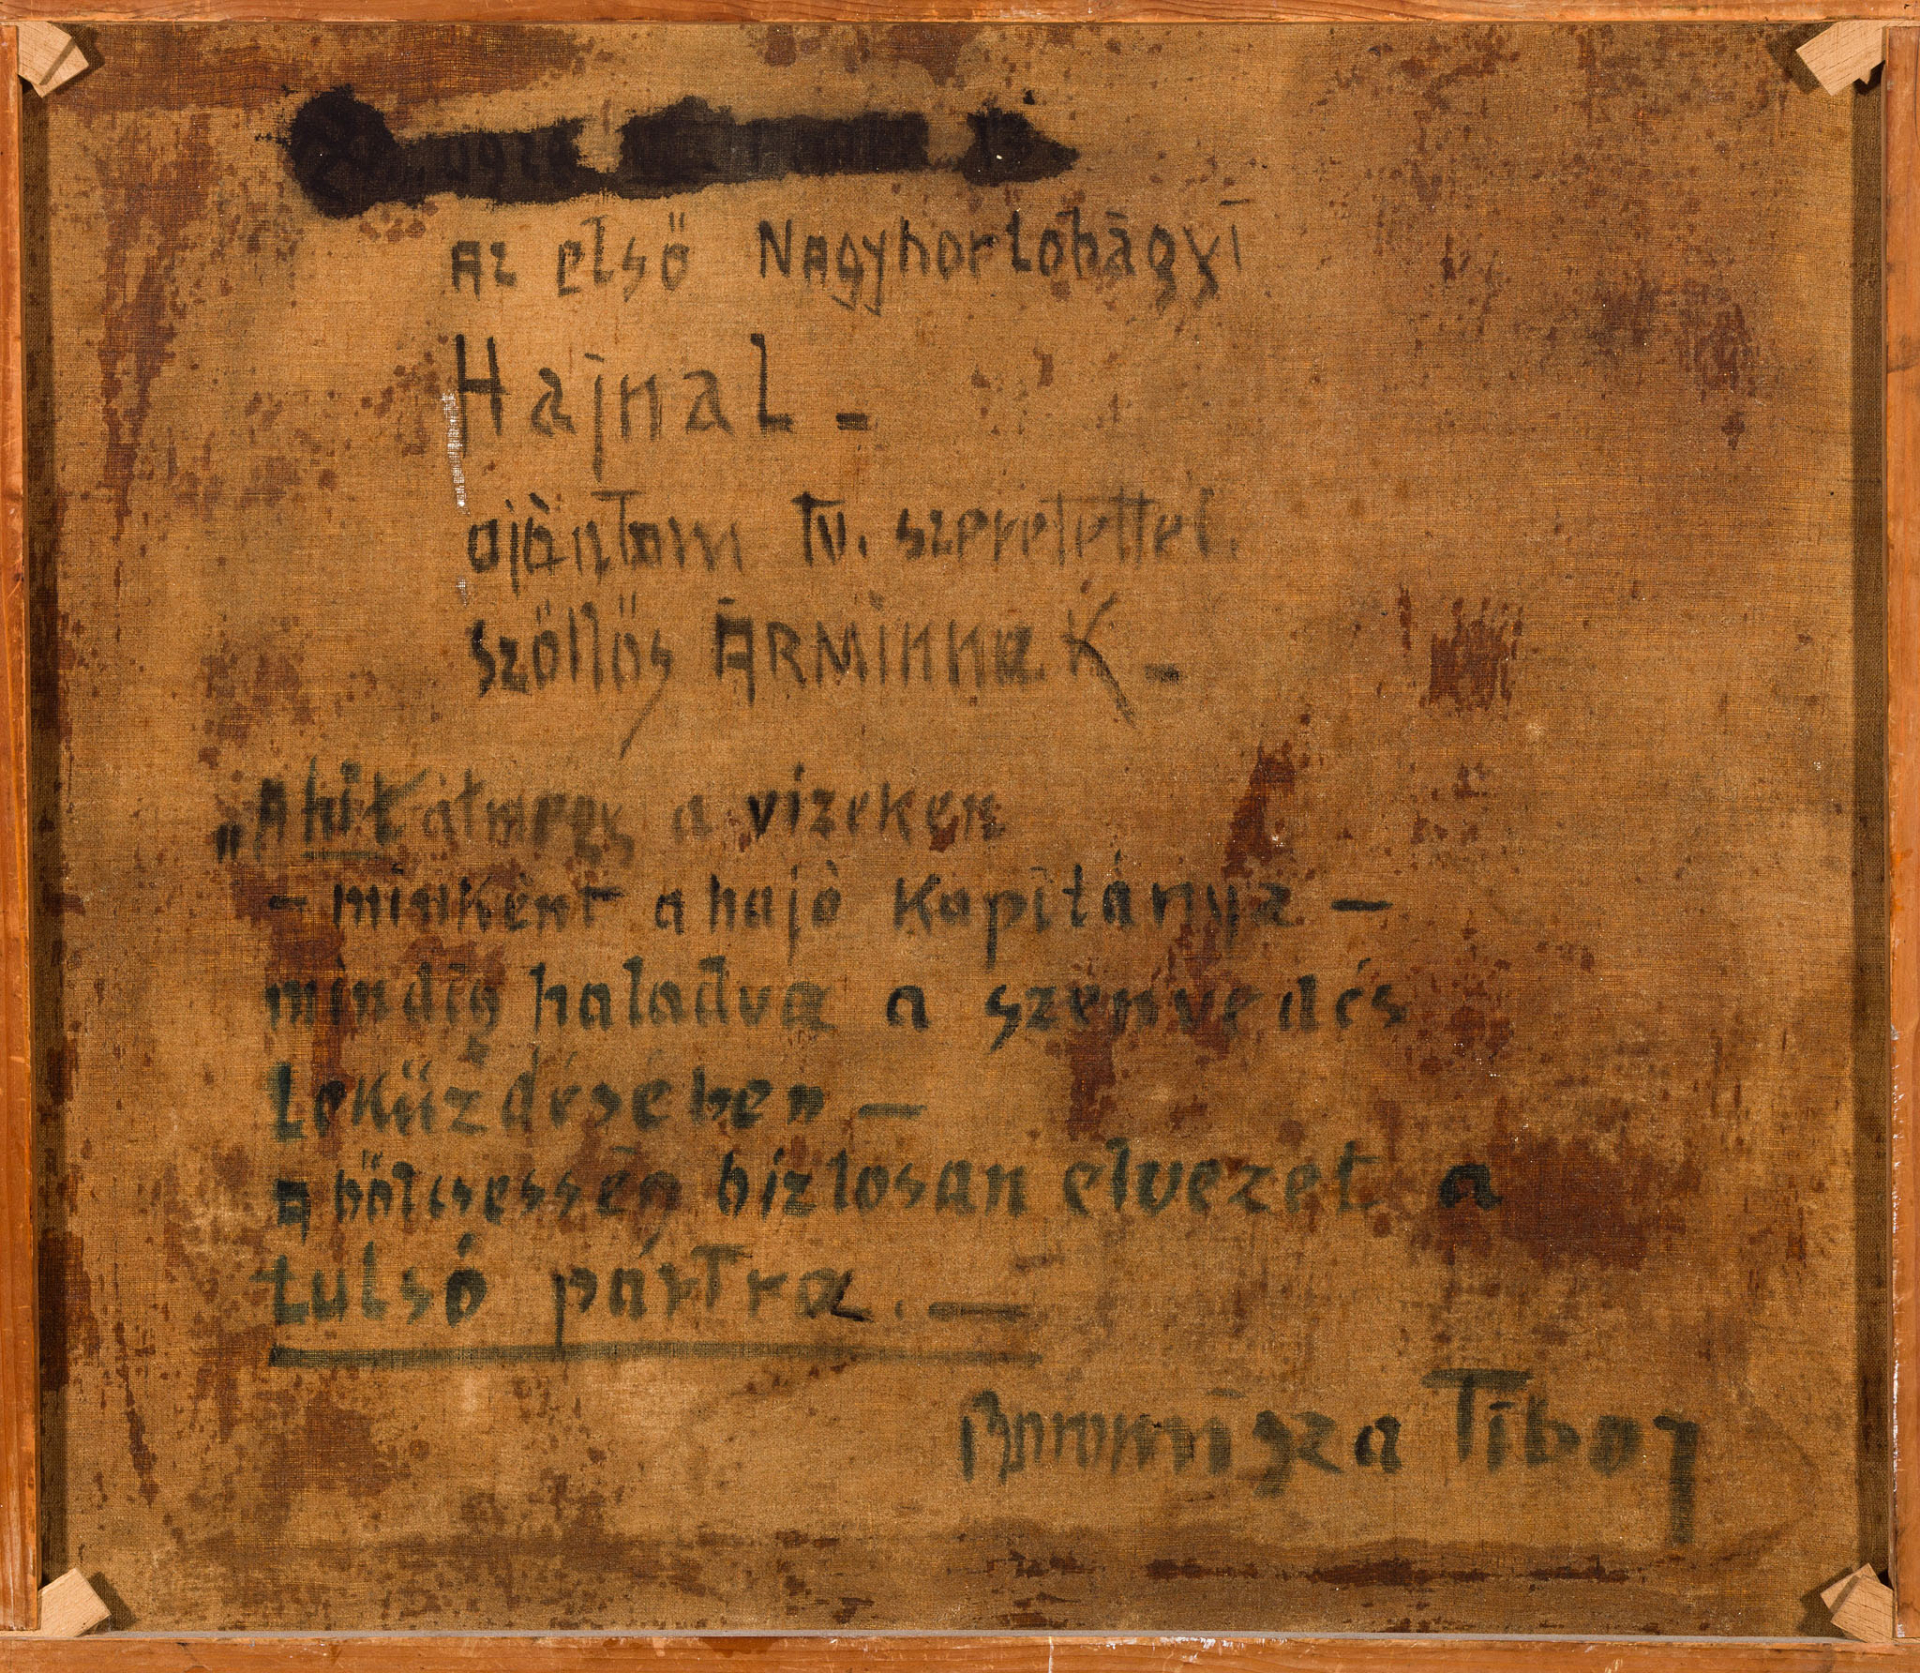 Az első Nagyhortobágyi
Hajnal -
ajánlom tv. szeretettel.
szöllős ÁRMinnak -
„A hit átmegy a vizeken
- miként a hajó kapitánya -
mindig haladva a szenvedés
leküzdésében -
A bölcsesség biztosan elvezet a
tulsó pártra. -
Boromisza Tibor